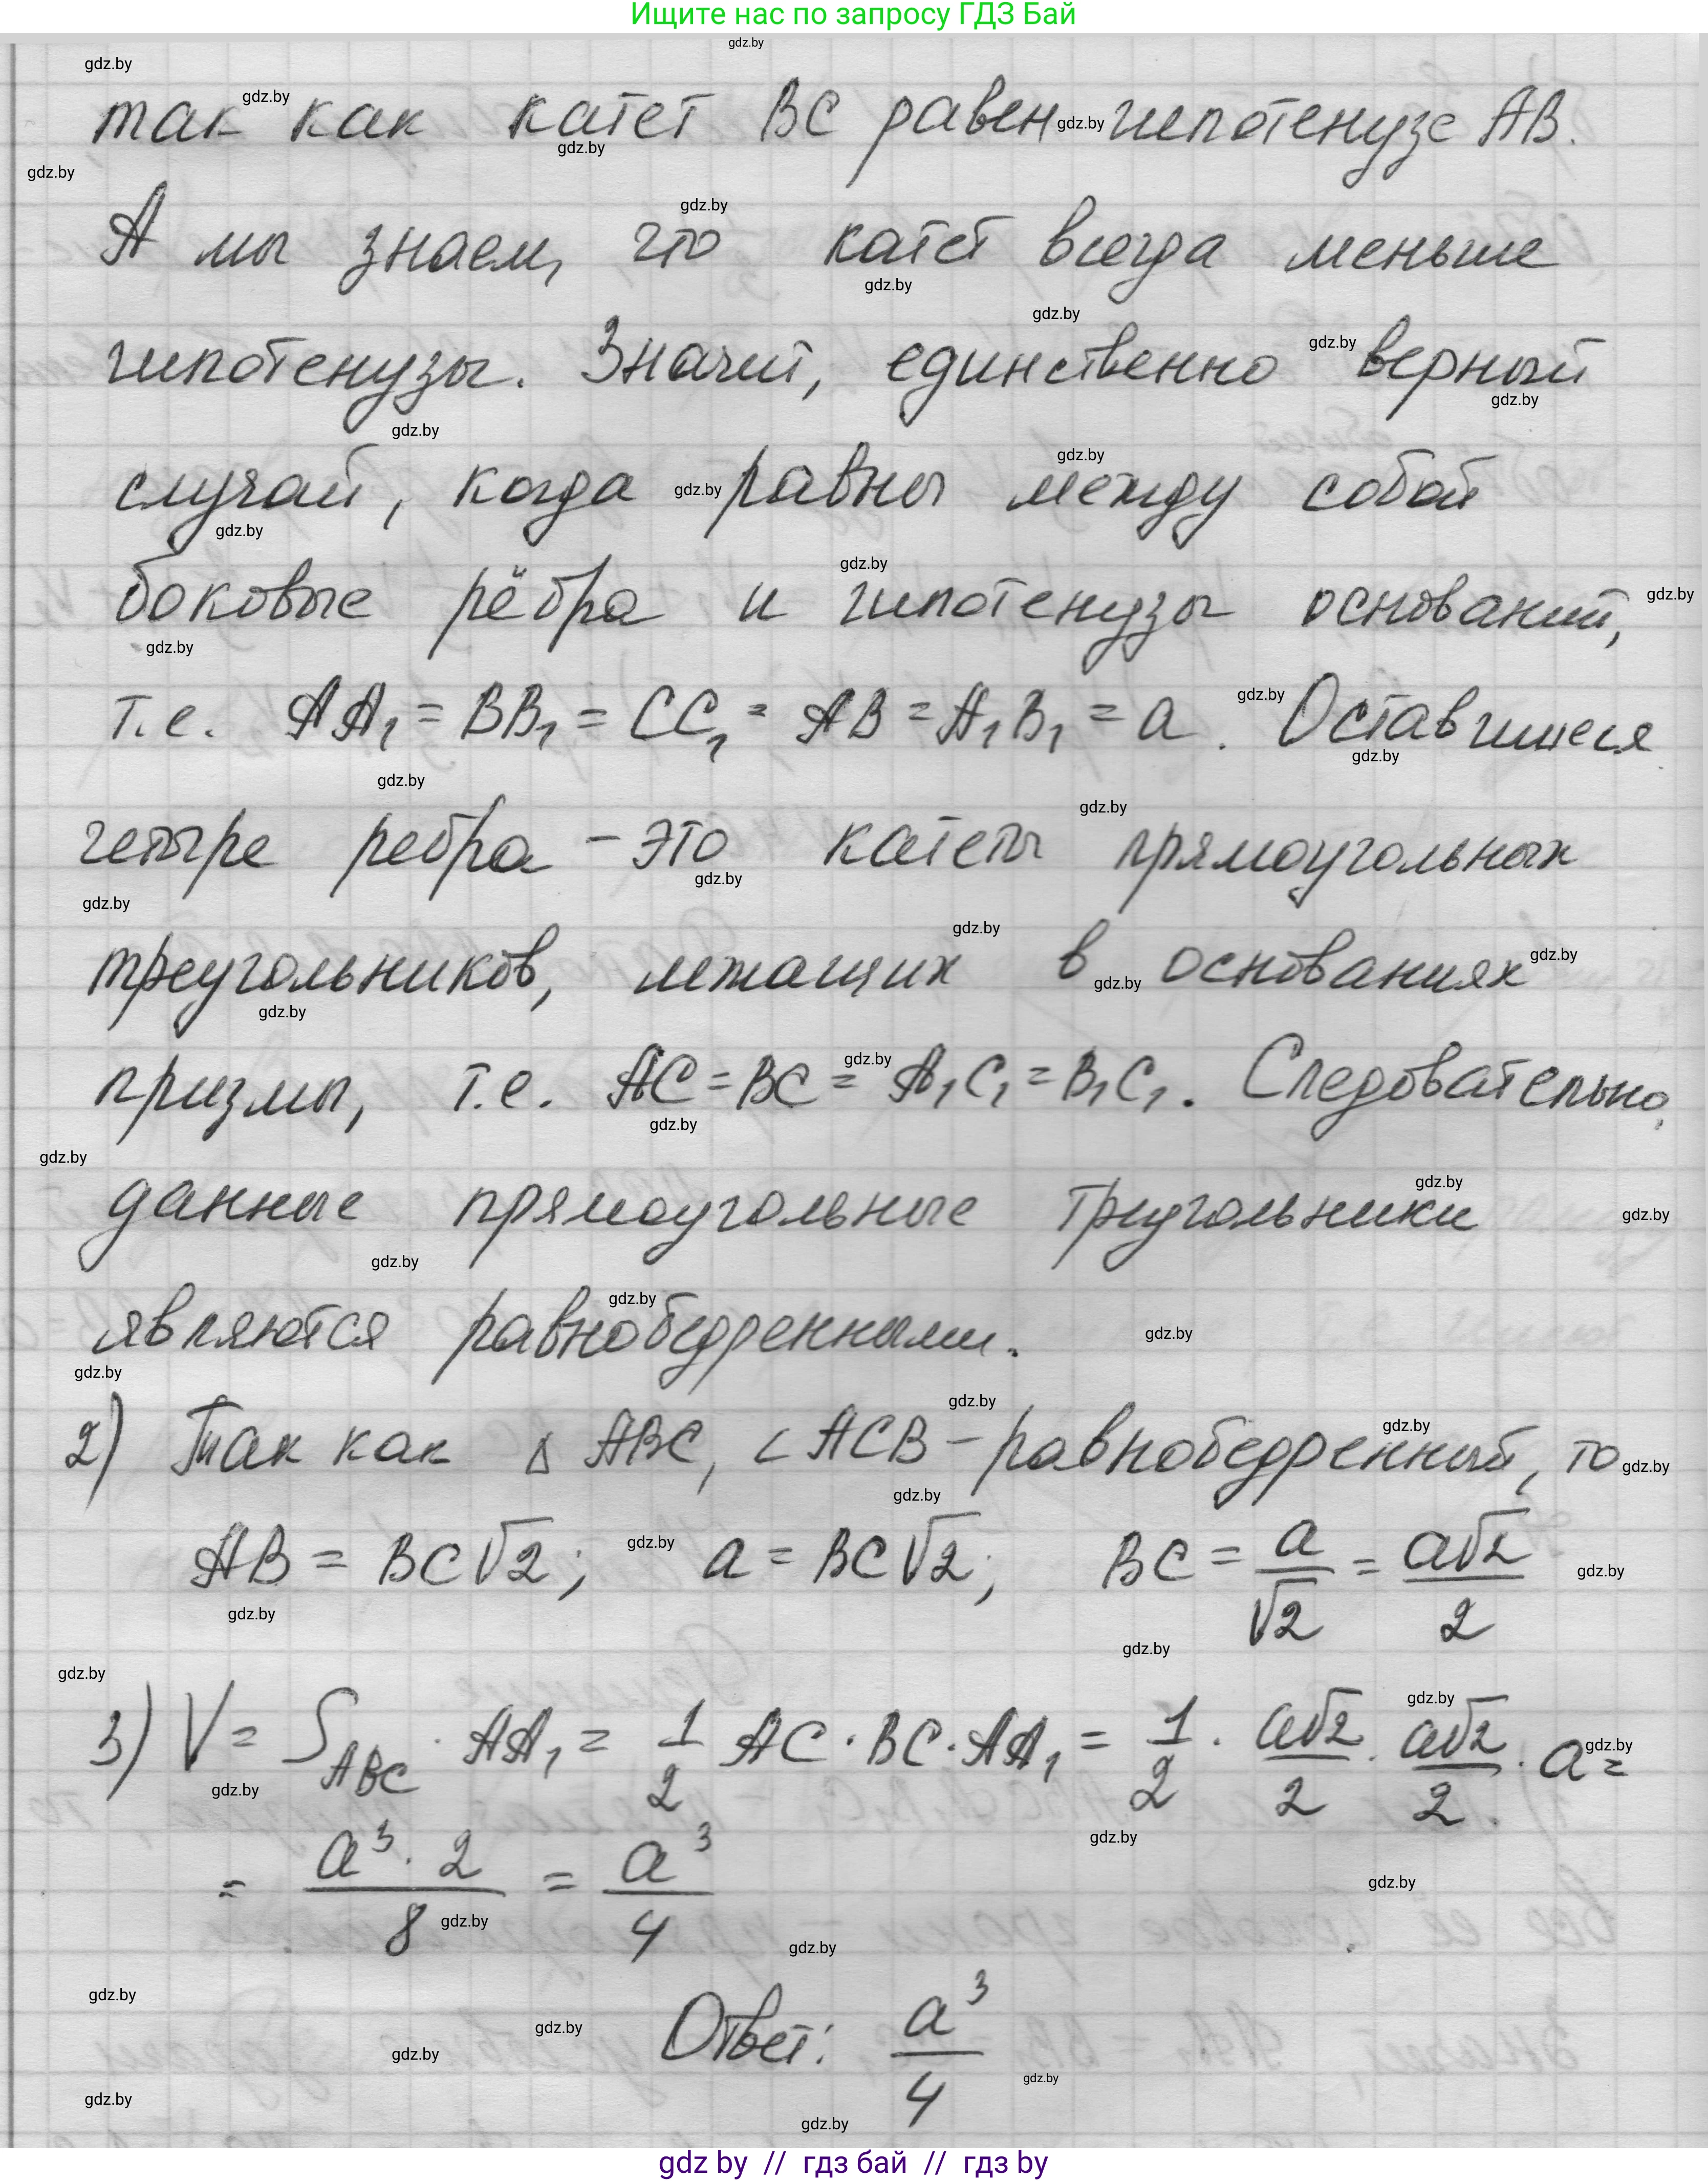 Ищите нас по запросу ГДЗ Бай
так как катет BC равен гипотенузе AB.
А мы знаем, что катет всегда меньше
гипотенузы. Значит, единственно верный
случай, когда равны между собой
боковые рёбра и гипотенузы оснований,
т.е. AA₁ = BB₁ = CC₁ = AB = A₁B₁ = a. Оставшиеся
четыре ребра – это катеты прямоугольных
треугольников, лежащих в основаниях
призмы, т.е. AC = BC = A₁C₁ = B₁C₁. Следовательно,
данные прямоугольные треугольники
являются равнобедренными.
2) Так как △ ABC, ∠ ACB – равнобедренный, то
AB = BC√2; a = BC√2; BC = a/√2 = a√2/2
3) V = S_ABC · AA₁ = 1/2 AC · BC · AA₁ = 1/2 · a√2/2 · a√2/2 · a =
= a³ · 2/8 = a³/4
Ответ: a³/4
gdz by // гдз бай // гдз by